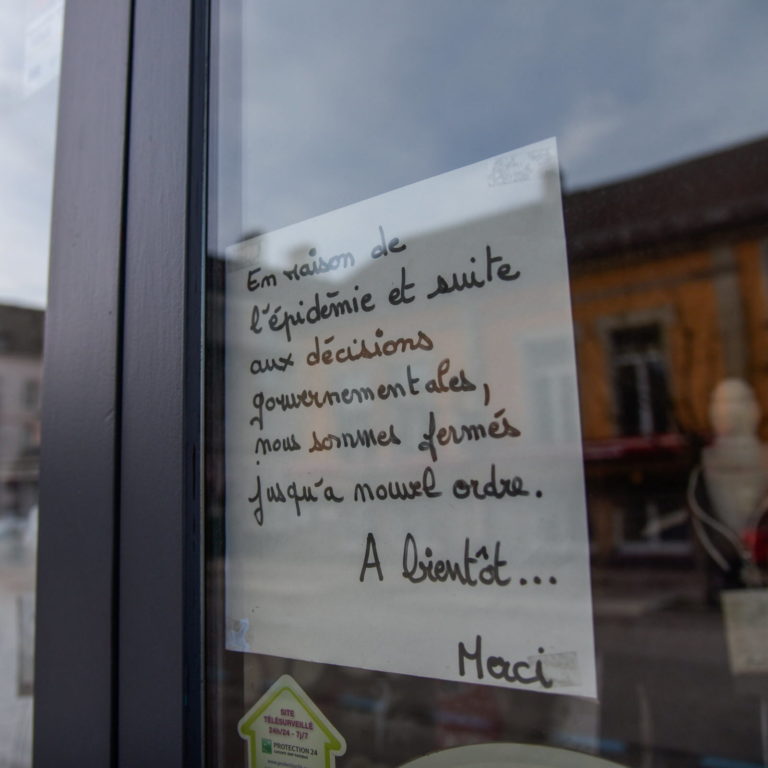 En raison de
l'épidémie et suite
aux décisions
gouvernementales,
nous sommes fermés
jusqu'a nouvel ordre.
A bientôt...
Merci
SITE
TÉLÉSURVEILLÉ
24h/24 - 7j/7
PROTECTION 24